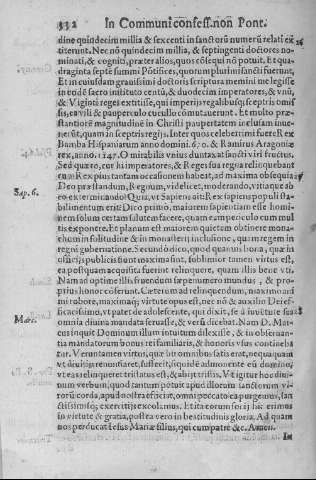 332 In Communi confess. non Pont.
dine quindecim millia & sexcenti in sanctorũ numerũ relati ex
titerunt. Nec nõ quindecim millia, & septingenti doctores no
minati, & cogniti, præter alios, quos cõsequi nõ potuit. Et qua-
draginta septẽ summi Põtifices, quorum plurimi sancti fuerunt,
Et in cuiusdam grauissimi doctoris scriptura memini me legisse
in eodẽ sacro instituto centũ, & duodecim imperatores, & vnũ,
& Viginti reges extitisse, qui imperijs regalibusq; sceptris omis
sis, ea vili & paupertulo cucullo cõmutauerunt. Et multo præ-
stantiorẽ magnitudinẽ in Christi paupertatem inclusam inue-
nerũt, quam in sceptris regijs. Inter quos celeberrimi fuere Rex
Bamba Hispaniarum anno domini. 670. & Ramirus Aragoniæ
rex, anno. 1147. O mirabilis vnius duntaxat sancti viri fructus.
Sed quæro, cur hi imperatores, & Reges sua regna relinquebant
cum Rex pius tantam occasionem habeat, ad maxima obsequia
Deo præstandum, Regnum, videlicet, moderando, vitiaque ab
Sap. 6. eo exterminando? Quia, vt Sapiens ait: Rex sapiens populi sta-
bilimentum erit: Dico primò, maiorem sapientiam esse homi-
nem solum certam salutem facere, quam cum periculo cum mul
tis exponere. Et planum est maiorem quietum obtinere mona-
chum in solitudine & in monasterij inclusione, quàm regem in
regni gubernatione. Secundò dico, quod quamuis bona, quæ in
officijs publicis fiunt maxima sint, sublimior tamen virtus est,
ea postquam acquisita fuerint relinquere, quam illis bene vti.
Nam ad optimè illis fruendum serpens mundus, & pro-
prius honor cõferunt. Cæterum ad relinquendum, maximo ani
mi robore, maximaq; virtute opus est, nec nõ & auxilio Dei ef-
ficacissimo, vt patet de adolescente, qui dixit, se à iuuẽtute sua
Marc. omnia diuina mandata seruasse, & verũ dicebat. Nam D. Mar-
cus inquit Dominum illum intuitum dilexisse, & in obseruan-
tia mandatorum bonus rei familiaris, & honoris vsus contineba
tur. Veruntamen virtus, quæ his omnibus satis erat, nequaquam
vt diuitijs renuntiaret, sufficeret, siquidẽ admonente eũ domino,
vt eas relinqueret tristatus est, & abijt tristis. Vtigitur hoc diui-
num verbum, quod tantum potuit apud illorum sanctorum vi-
rorũ corda, apud nostra efficiat, omni peccato ea purgemus, san
ctissimisq; exercitijs excolamus. Et ita eorum socij hic erimus
in virtute & gratia, postea vero in beatitudinis gloria. Ad quam
nos perducat Iesus Mariæ filius, qui cum patre &c. Amen.
In